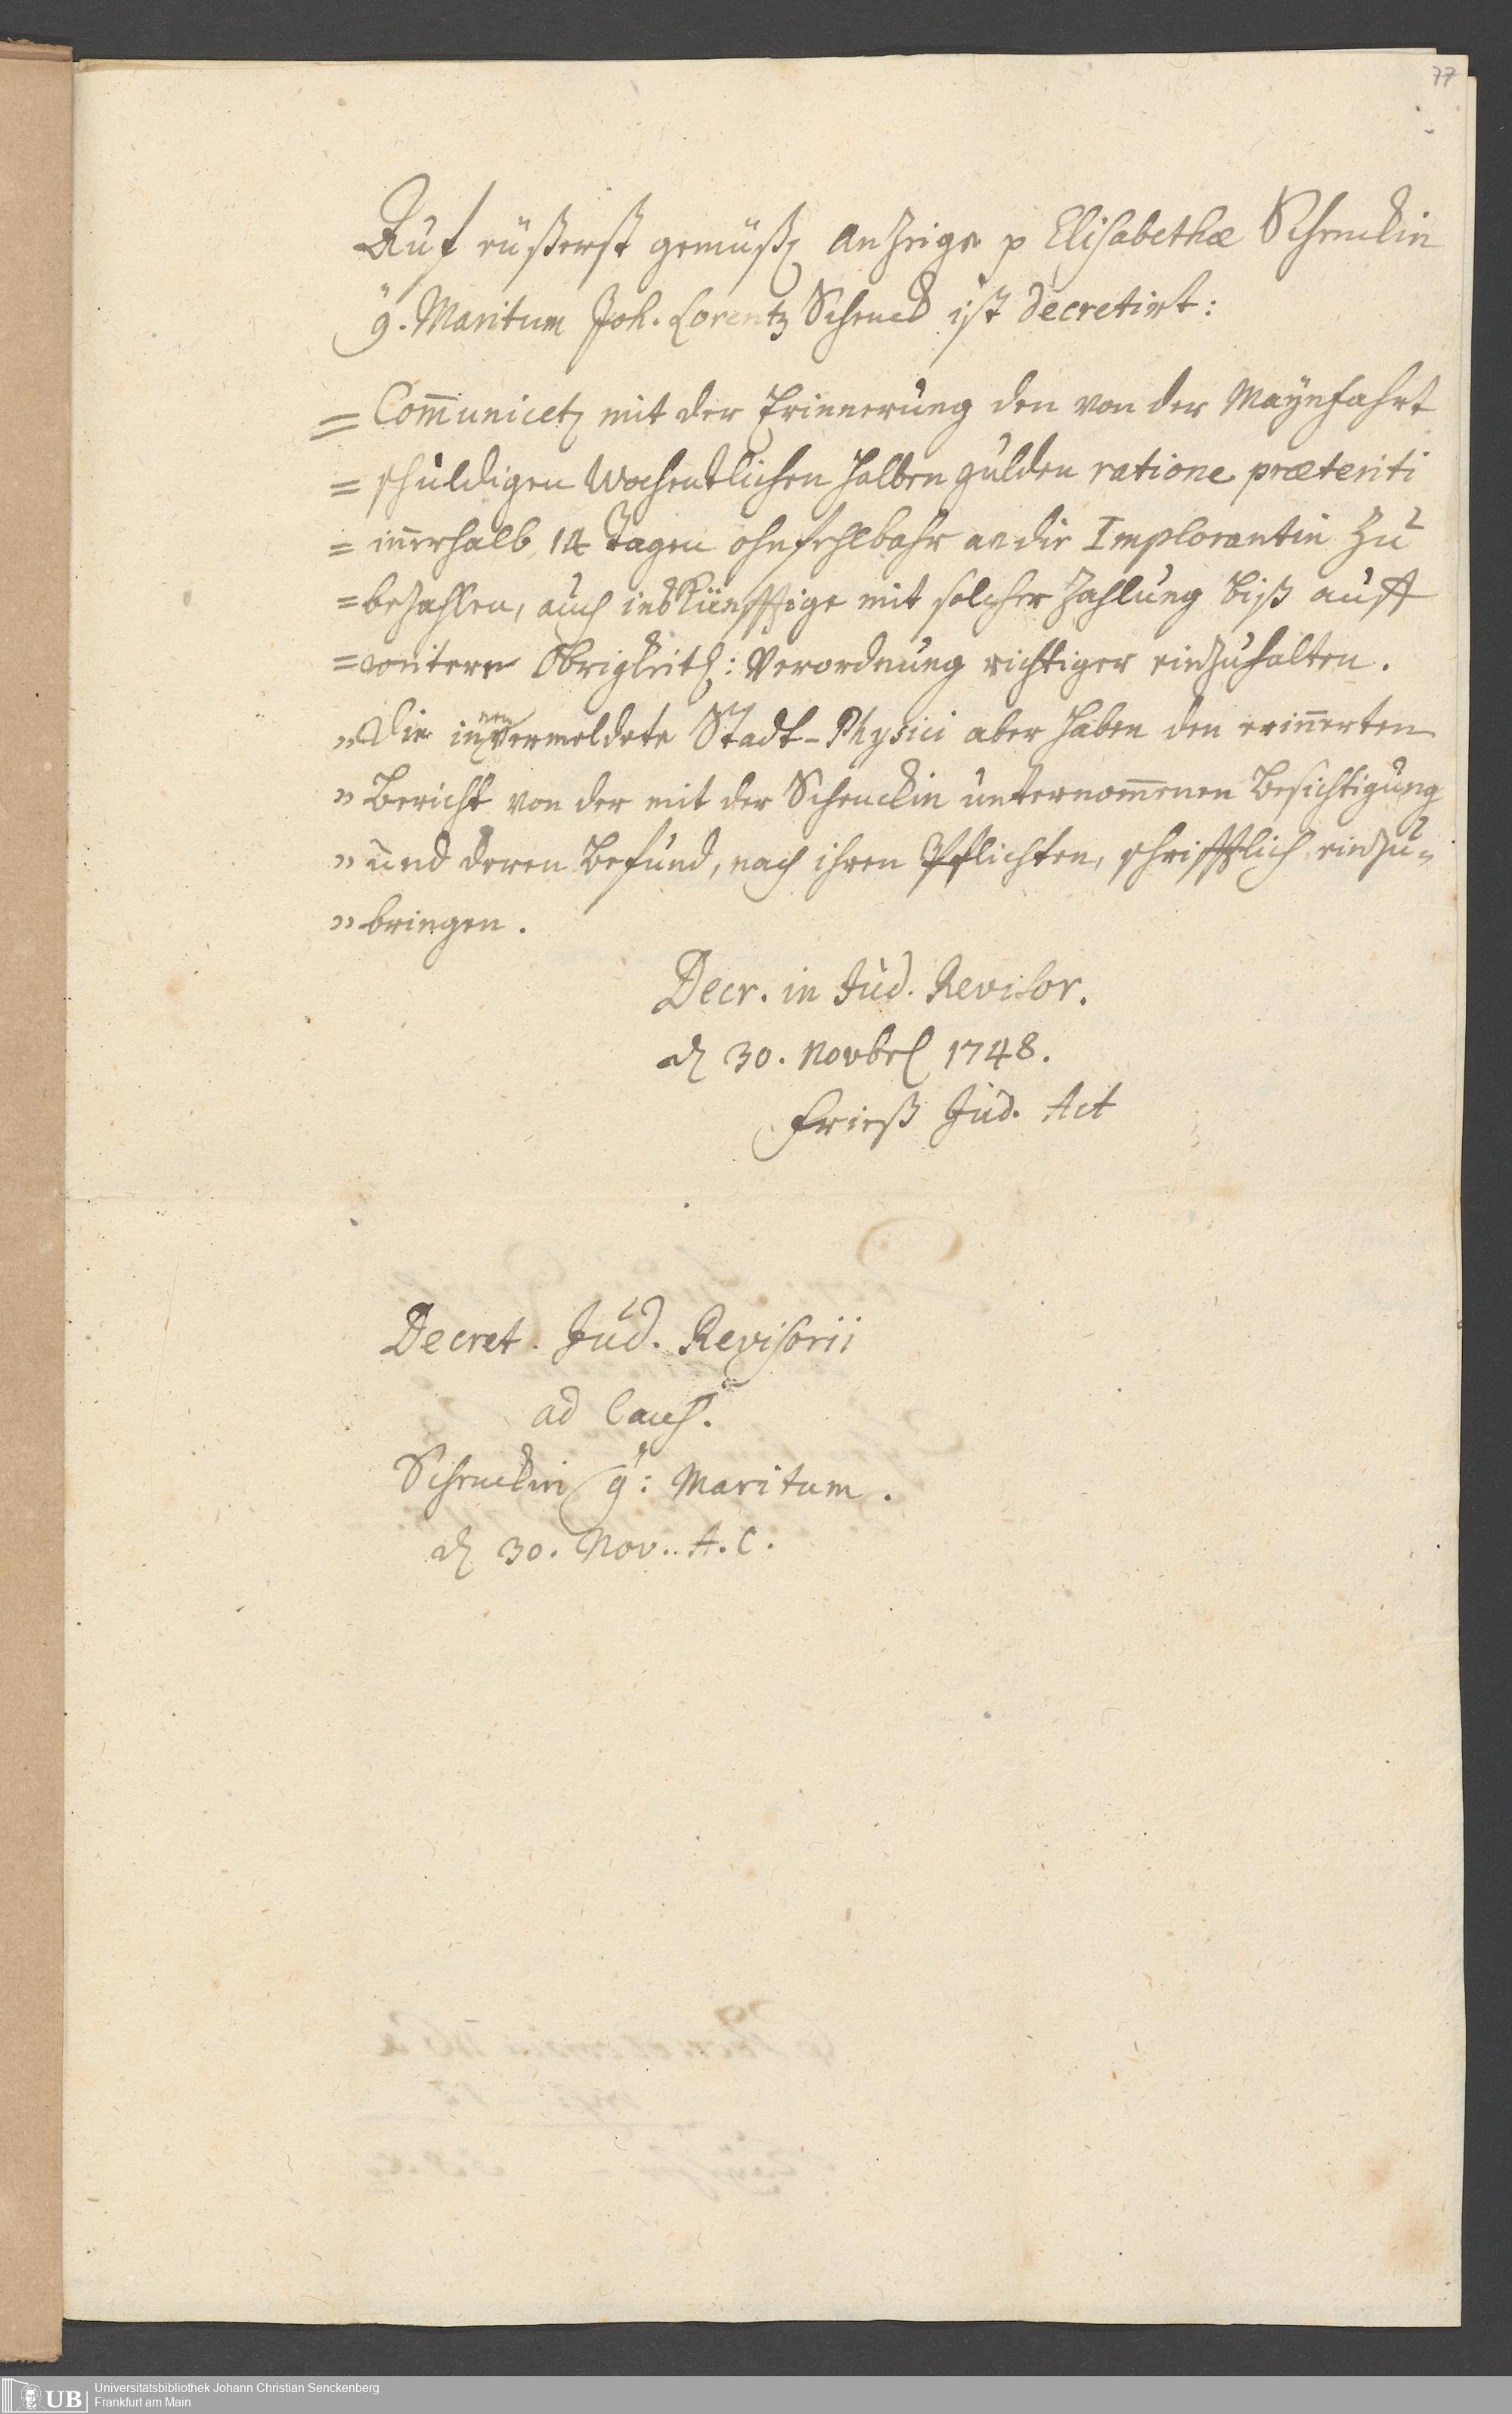 77
Auf eüßerst gemüß. Anzeige p Elisabethæ Schenckin
g. Maritum Joh. Lorentz Schenck ist decretirt:
= Com̄unicet. mit der Erinnerung den von der Maÿnfahrt
= schuldigen Wochentlichen halben gulden ratione præteriti
= in̄erhalb 14 Tagen ohnfehlbahr an die Implorantin zu
= bezahlen, auch ins Künfftige mit solcher Zahlung biß auff
= weitere Obrigkeitl: Verordnung richtiger einzuhalten.
„ Die innenvermeldete Stadt-Physici aber haben den erin̄erten
„ Bericht von der mit der Schenckin unternom̄enen Besichtigung
„ und deren Befund, nach ihren Pflichten, schrifftlich einzu=
„ bringen.
Decr. in Jud. Revisor.
d. 30. Novbrl 1748.
Frieß Jud. Act
Decret. Jud. Revisorii
ad Caus.
Schenckin g: Maritum.
d. 30. Nov.. A. C.
UB
Universitätsbibliothek Johann Christian Senckenberg
Frankfurt am Main